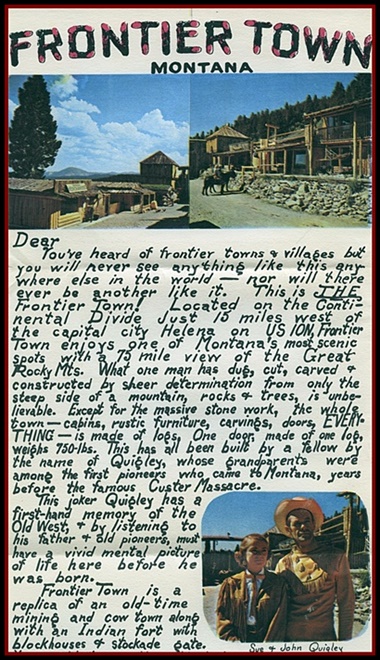 FRONTIER TOWN
MONTANA
Dear
You've heard of frontier towns & villages but
you will never see anything like this any-
where else in the world — nor will there
ever be another like it. This is THE
Frontier Town. Located on the Conti-
nental Divide Just 15 miles west of
the capital city Helena on US 10N, Frontier
Town enjoys one of Montana's most scenic
spots with a 75 mile view of the Great
Rocky Mts. What one man has dug, cut, carved &
constructed by sheer determination from only the
steep side of a mountain, rocks & trees, is unbe-
lievable. Except for the massive stone work, the whole
town — cabins, rustic furniture, carvings, doors, EVERY-
THING — is made of logs. One door, made of one log,
weighs 750-lbs. This has all been built by a fellow by
the name of Quigley, whose grandparents were
among the first pioneers who came to Montana, years
before the famous Custer Massacre.
This joker Quigley has a
first-hand memory of the
Old West, & by listening to
his father & old pioneers, must
have a vivid mental picture
of life here before he
was born.
Frontier Town is a
replica of an old-time
mining and cow town along
with an Indian fort with
blockhouses & stockade gate.
Sue & John Quigley